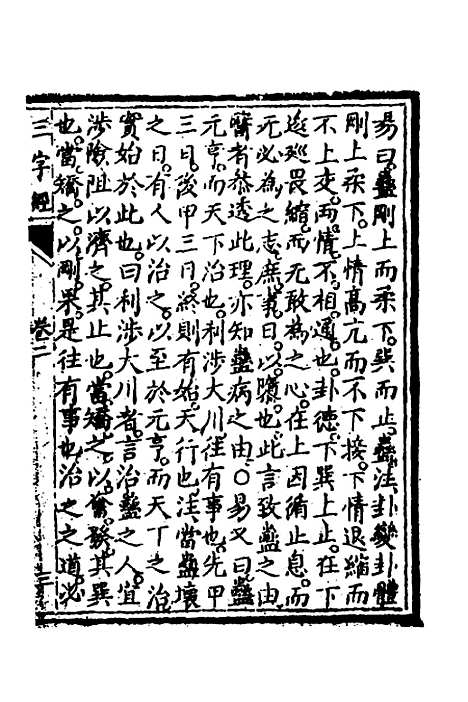 易曰蠱剛上而柔下巽而止蠱注卦變卦體
剛上柔下上情高亢而不下接下情退縮而
不上交兩情不相通也卦德下巽上止在下
逡廵畏縮而无敢為之心在上因循止息而
无必為之志庶事日以隳也此言致蠱之由
醫者恭透此理亦知蠱病之由○易又曰蠱
元亨而天下治也利涉大川往有事也先甲
三日後甲三日終則有始天行也注當蠱壞
之日有人以治之以至於元亨而天下之治
實始於此也曰利涉大川者言治蠱之人宜
涉險阻以濟之其止也當矯之以奮發其巽
也當矯之以剛果是往有事也治之之道必
三字經 卷二